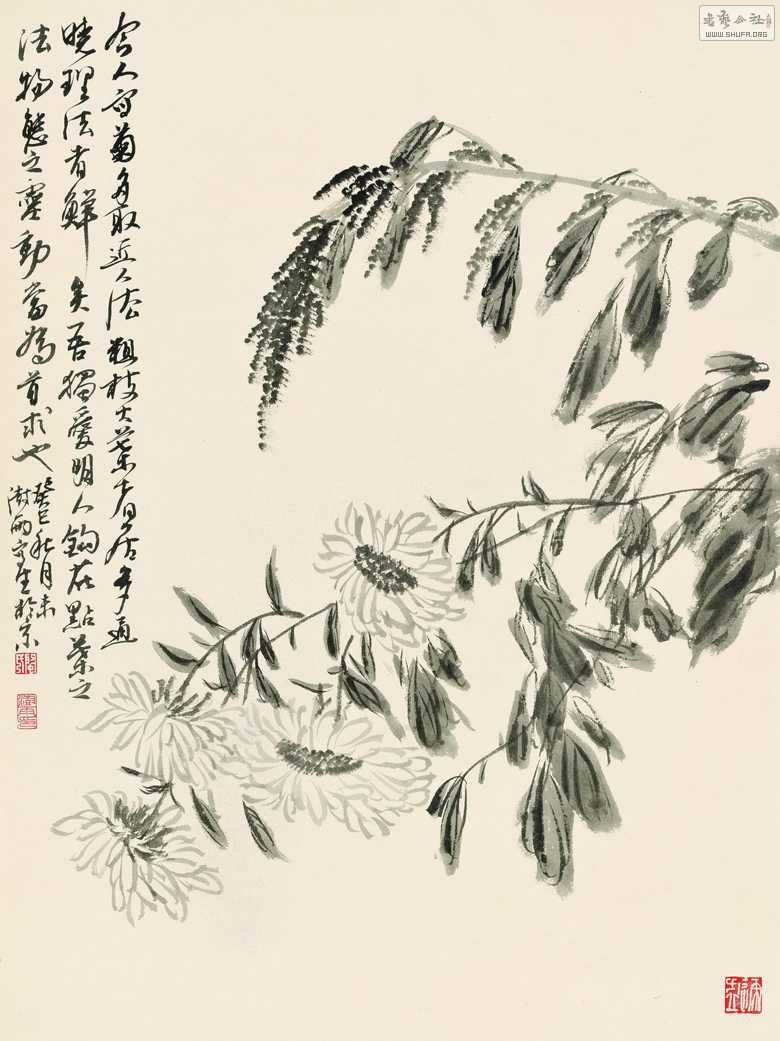 今人写菊多取近人法粗枝大叶者居多通
晓理法者鲜矣吾独爱明人钩花點葉之
法物態之靈動當為首求也
癸巳秋月
於京
書藝公社
WWW.SHUFA.ORG